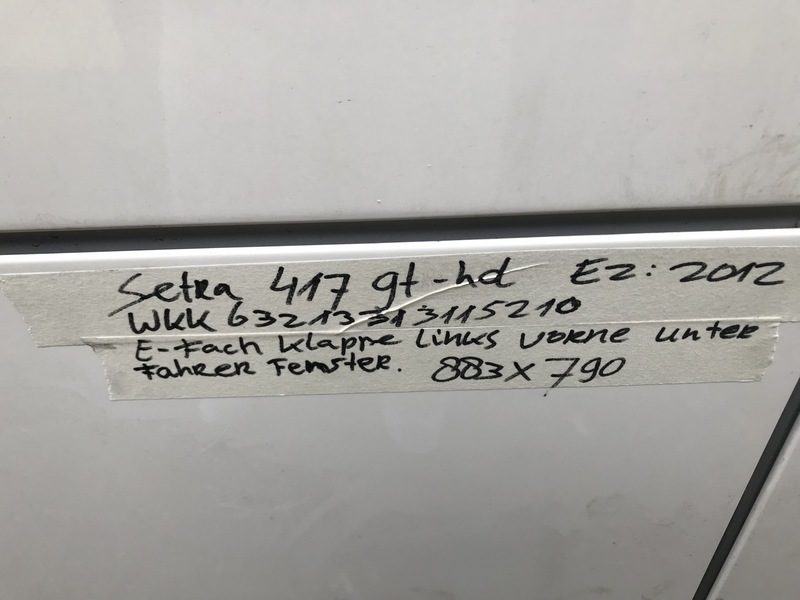 Setra 417 gt-hd EZ: 2012
WKK 63213313115210
E-Fach Klappe Links vorne unter
Fahrer Fenster. 883 x 790